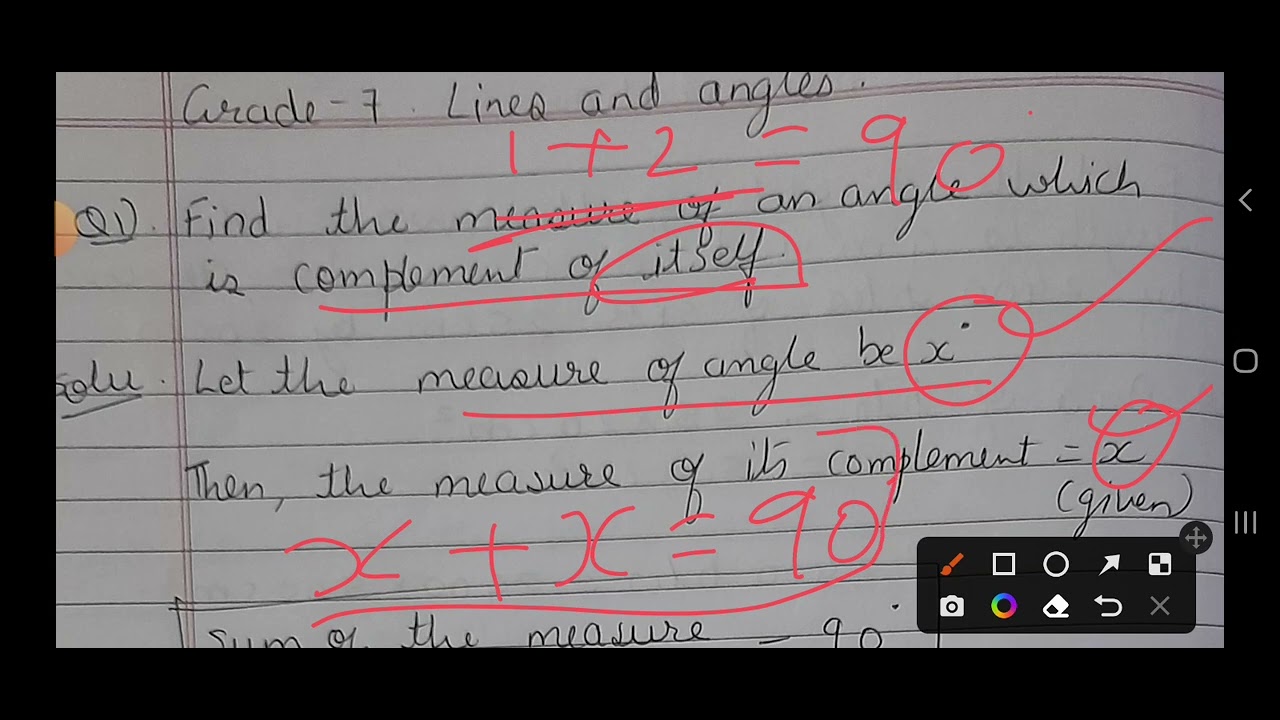 Grade-7. Lines and angles.
1 + 2 = 90
Q1). Find the measure of an angle which
is complement of itself.
Solu. Let the measure of angle be x°
Then, the measure of its complement = x
(given)
x + x = 90
Sum of the measure = 90°